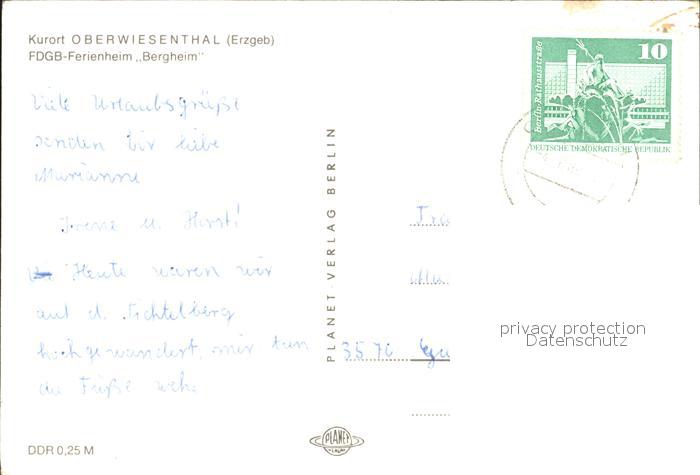 Kurort OBERWIESENTHAL (Erzgeb)
FDGB-Ferienheim „Bergheim"
Viele Urlaubsgrüße
senden Dir liebe
Marianne
Irene u. Horst!
Heute waren wir
auf d. Fichtelberg
hochgewandert, mir tun
die Füße weh.
DDR 0,25 M
PLANET-VERLAG BERLIN
PLANET
10
Berlin·Rathausstraße
DEUTSCHE DEMOKRATISCHE REPUBLIK
3570
privacy protection
Datenschutz